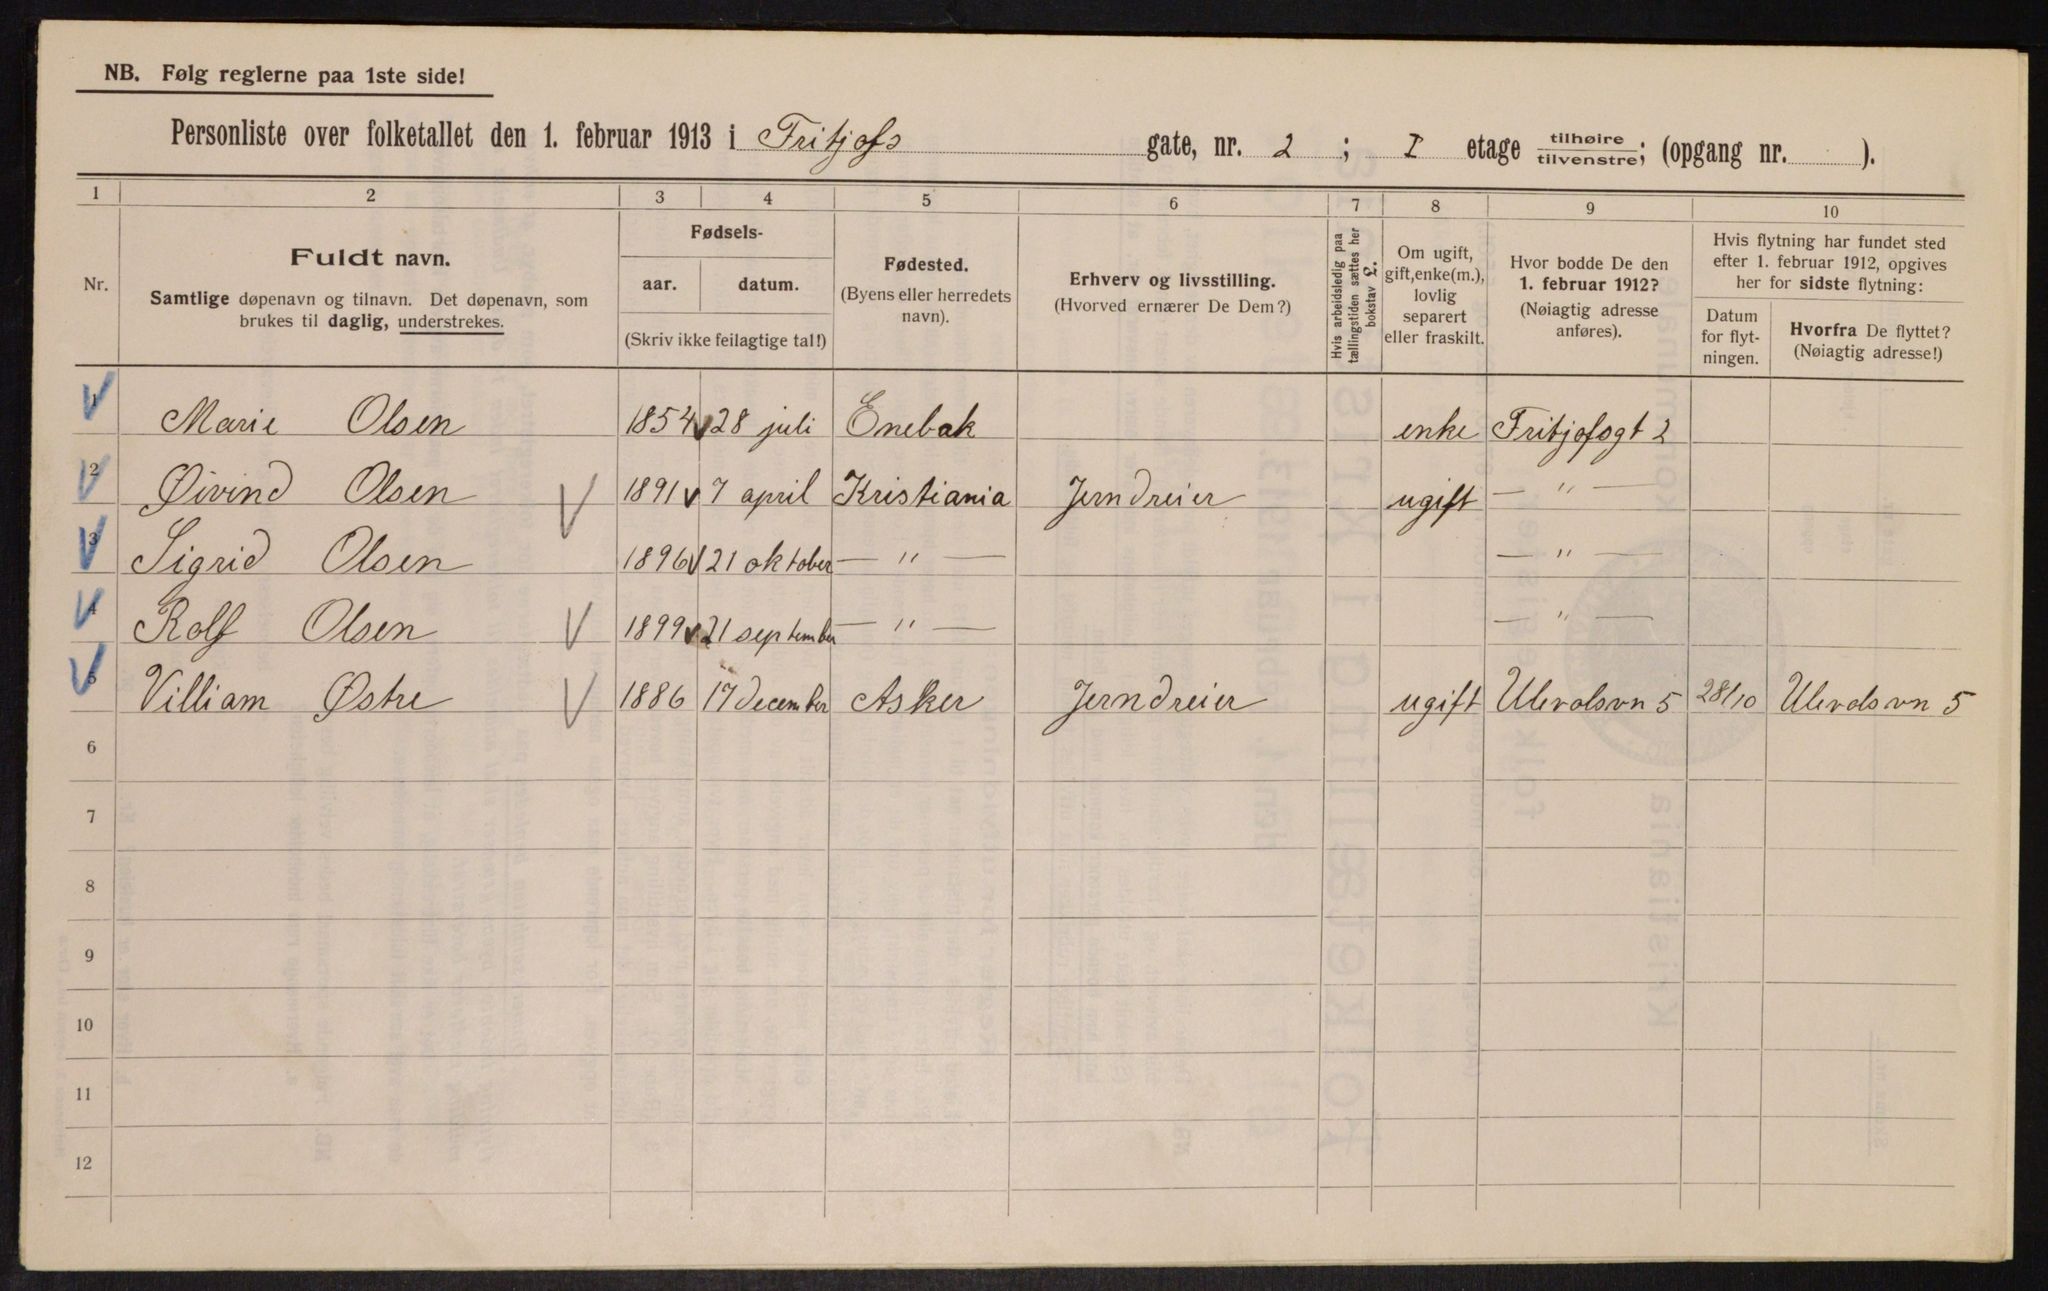 NB. Følg reglerne paa 1ste side!
Personliste over folketallet den 1. februar 1913 i Fritjofs gate, nr. 2 ; I etage tilhøire/tilvenstre; (opgang nr. ).
1 2 3 4 5 6 7 8 9 10
Nr.
Fuldt navn.
Samtlige døpenavn og tilnavn. Det døpenavn, som
brukes til daglig, understrekes.
Fødsels-
aar. datum.
(Skriv ikke feilagtige tal!)
Fødested.
(Byens eller herredets
navn).
Erhverv og livsstilling.
(Hvorved ernærer De Dem?)
Hvis arbeidsledig paa
tællingstiden sættes her
bokstav L.
Om ugift,
gift, enke(m.),
lovlig
separert
eller fraskilt.
Hvor bodde De den
1. februar 1912?
(Nøiagtig adresse
anføres).
Hvis flytning har fundet sted
efter 1. februar 1912, opgives
her for sidste flytning:
Datum
for flyt-
ningen.
Hvorfra De flyttet?
(Nøiagtig adresse!)
1 Marie Olsen 1854 28 juli Enebak enke Fritjofsgt 2
2 Øivind Olsen 1891 7 april Kristiania Jerndreier ugift — " —
3 Sigrid Olsen 1896 21 oktober — " — — " —
4 Rolf Olsen 1899 21 september — " — — " —
5 Villiam Østre 1886 17 december Asker Jerndreier ugift Ulevolsvn 5 28/10 Ulevolsvn 5
6
7
8
9
10
11
12